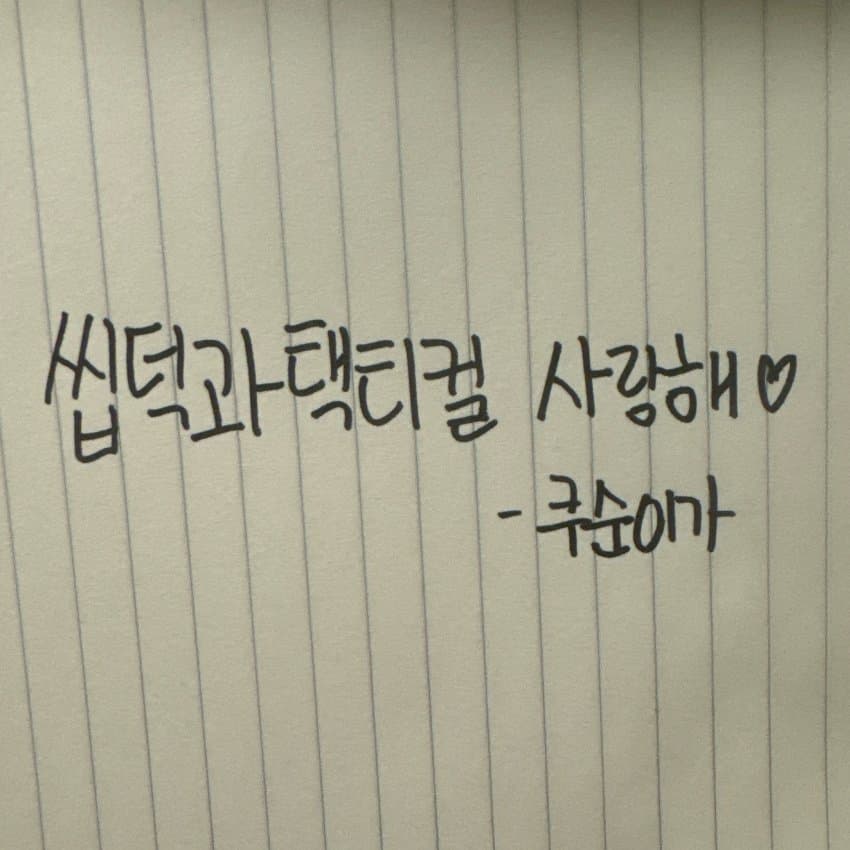 씹덕과택티컬 사랑해♡
- 쿠순이가